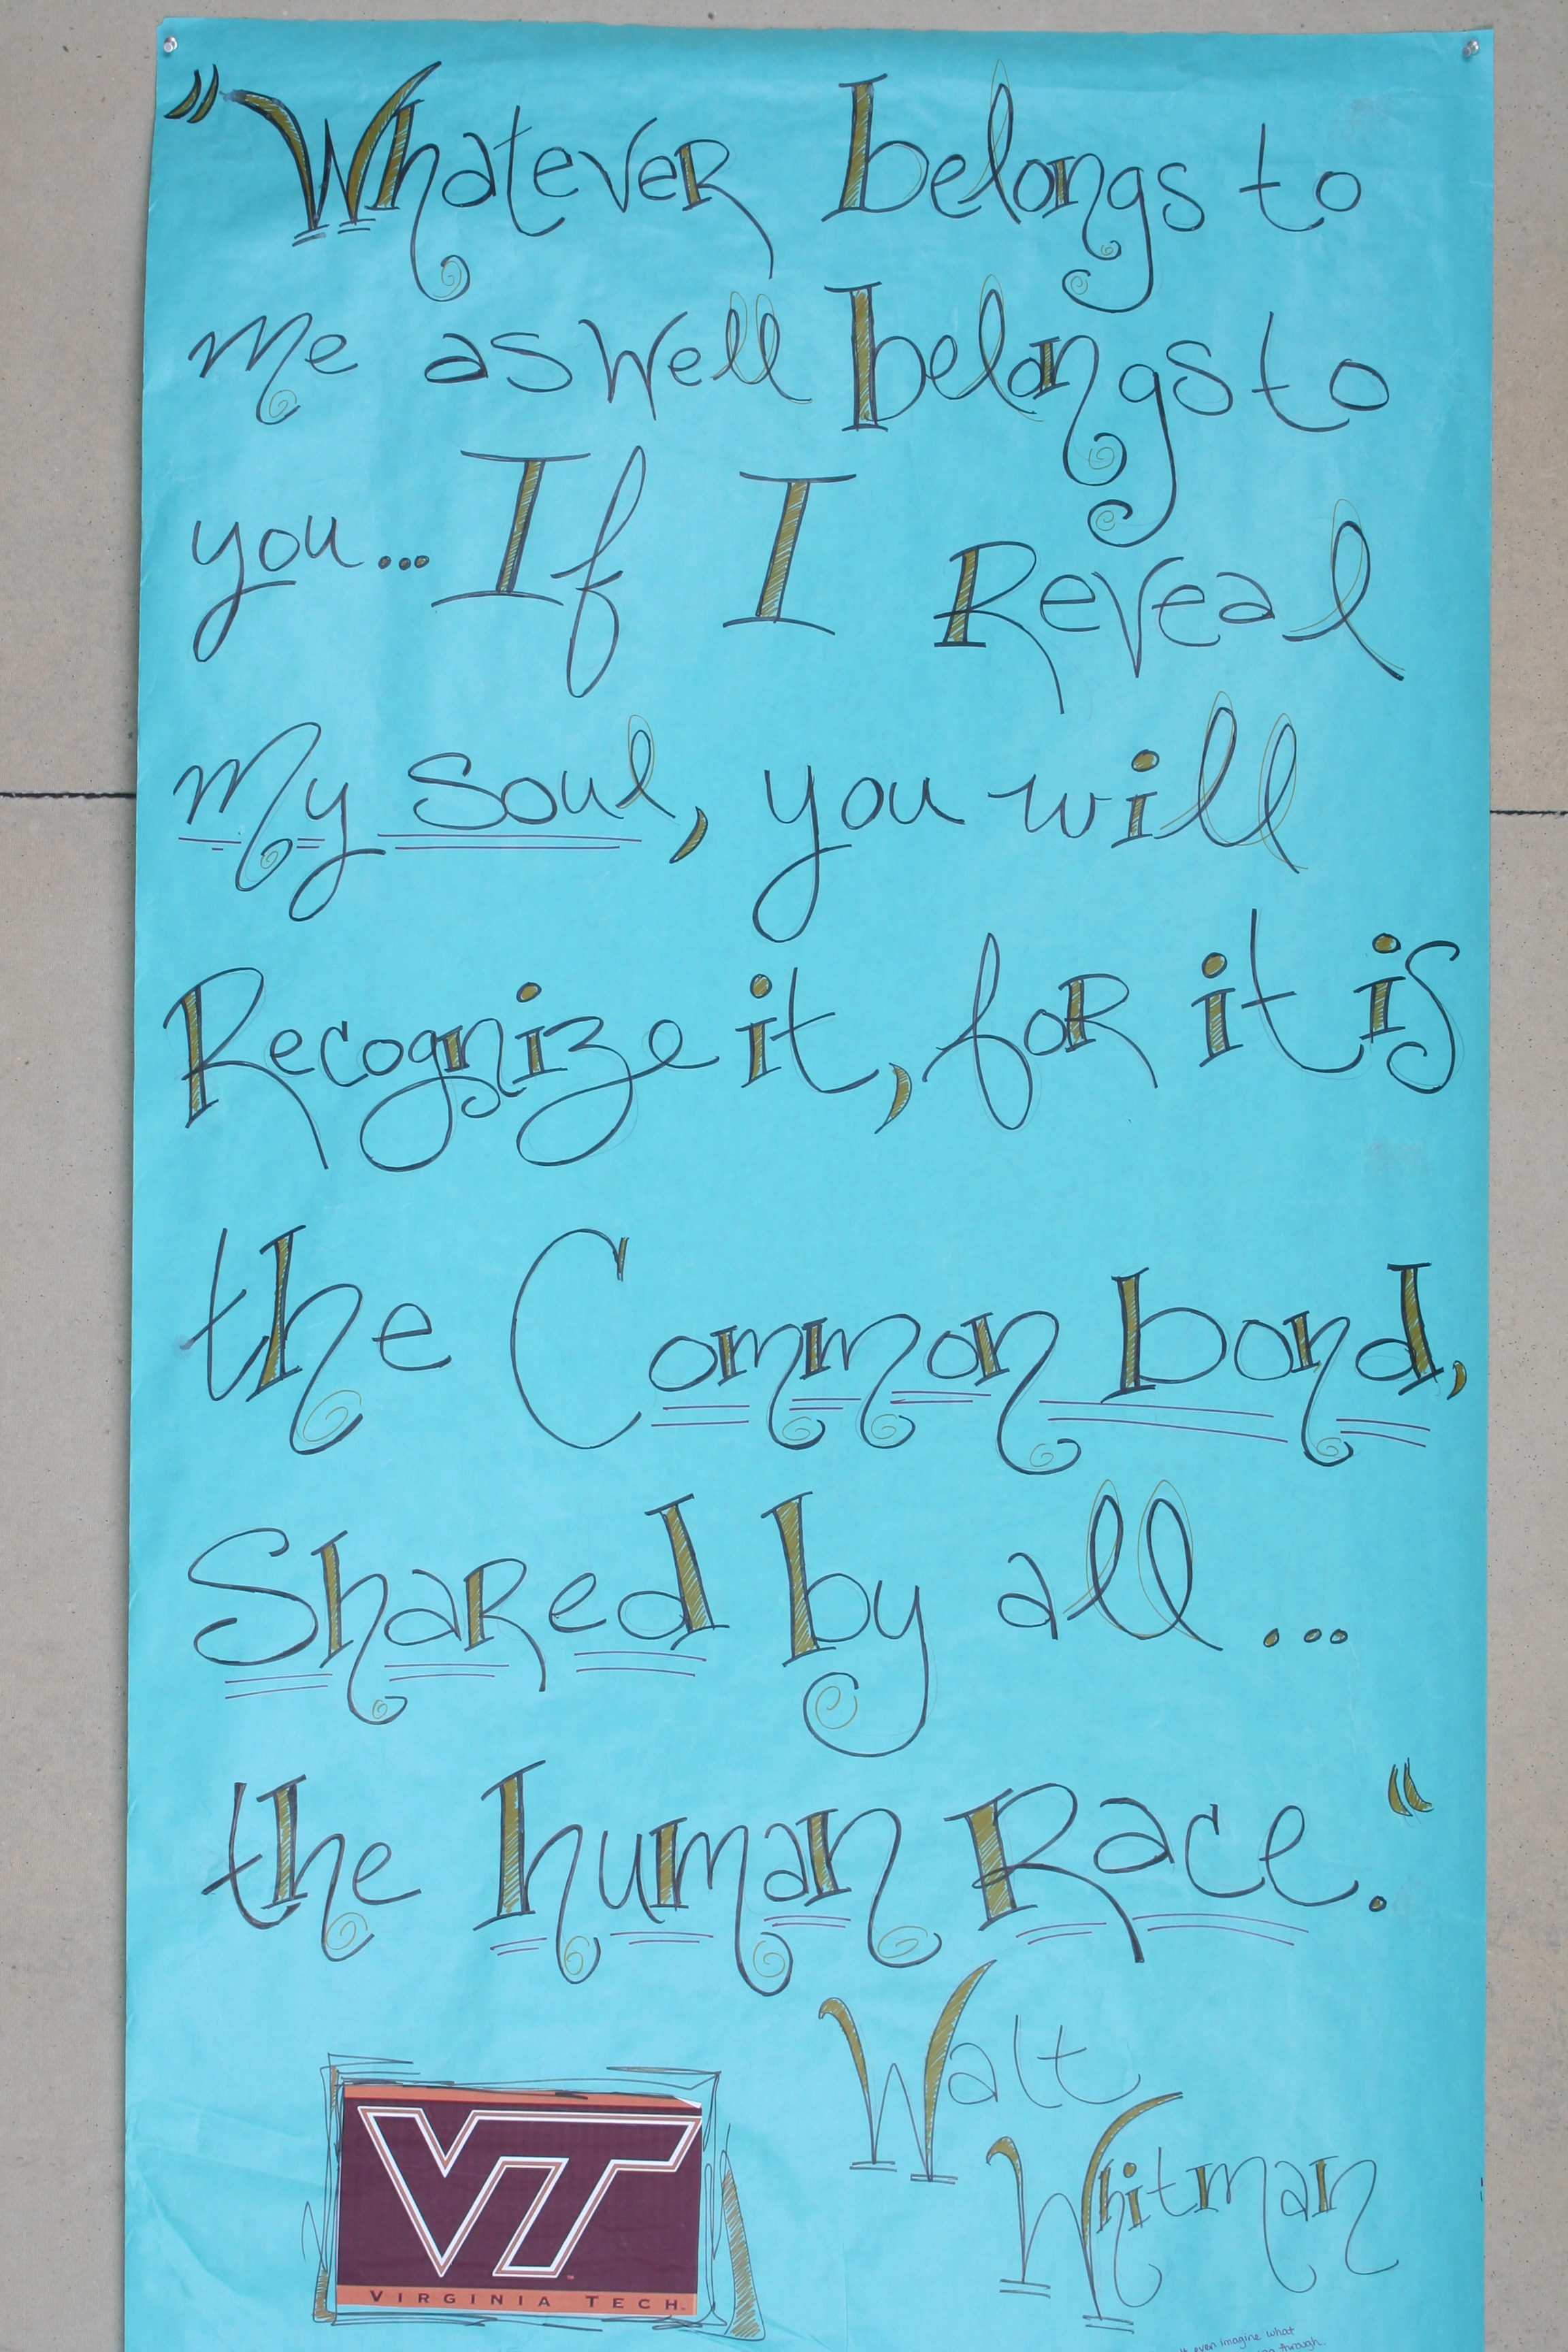 "Whatever belongs to
me as well belongs to
you... If I Reveal
my soul, you will
Recognize it, for it is
the Common bond,
Shared by all...
the human Race."
Walt
Whitman
VT
VIRGINIA TECH
even imagine what
through